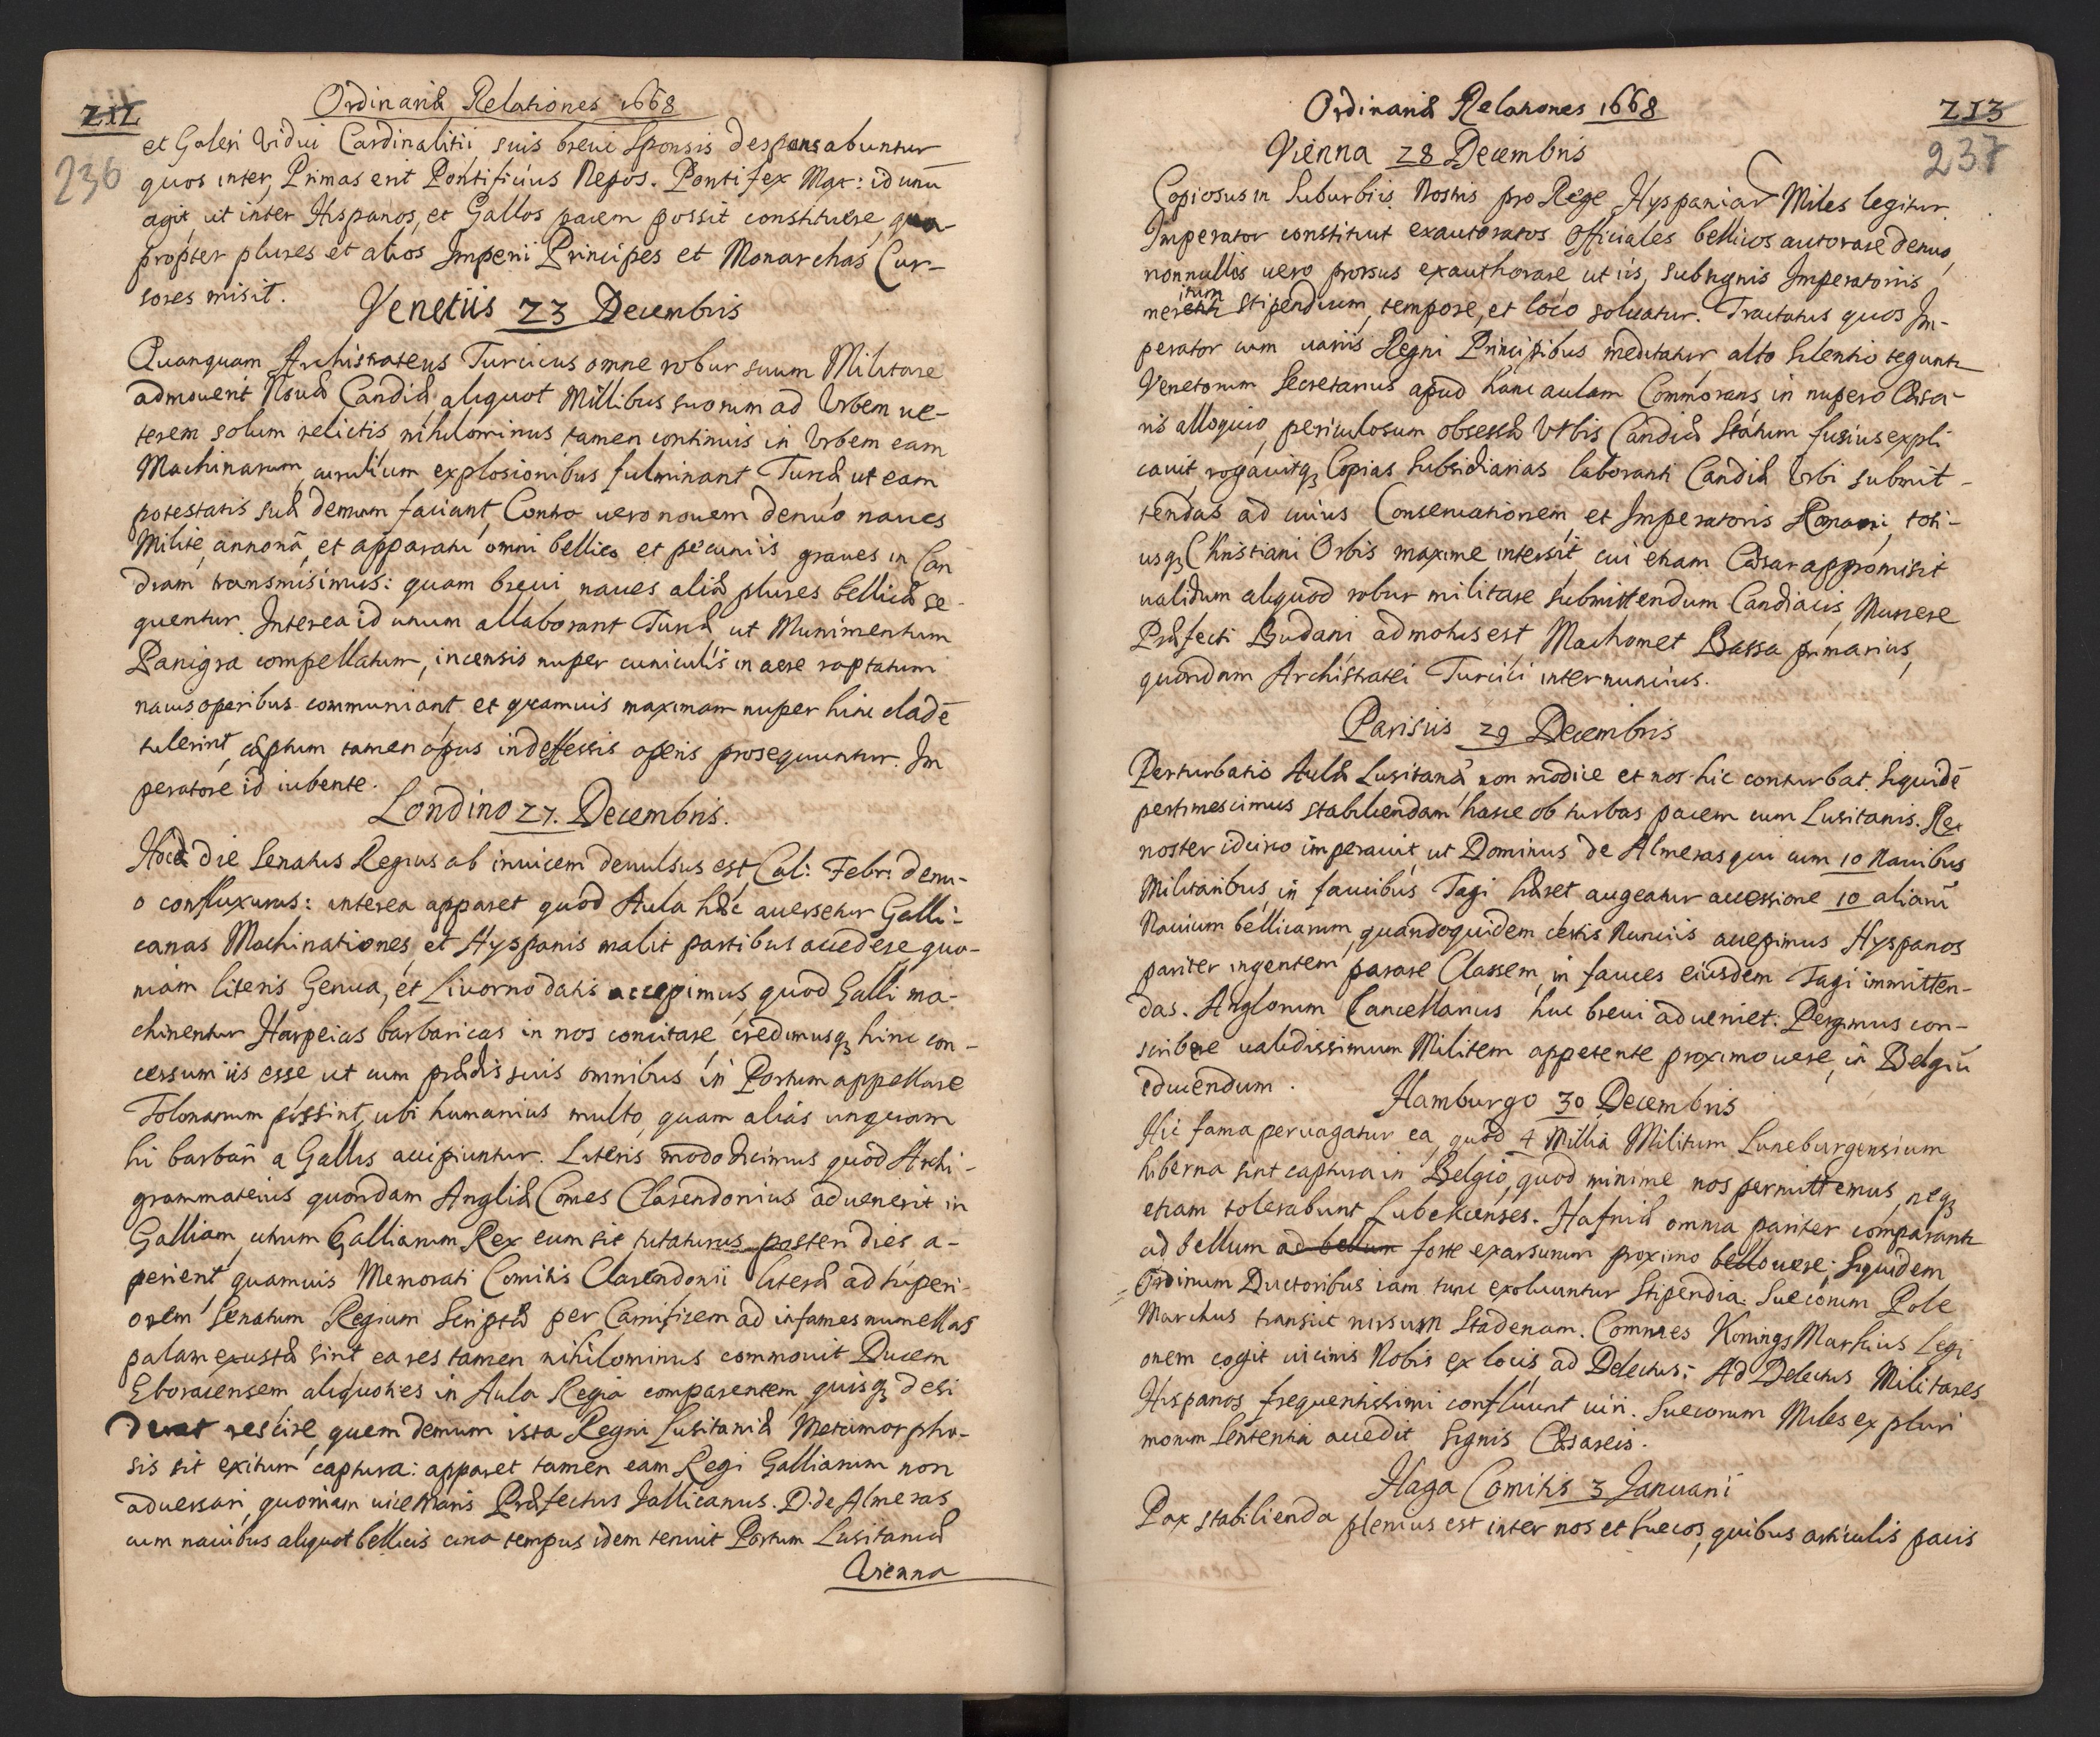 Ordinariæ Relationes 1668
212
236
et Galeri vidui Cardinalitii suis brevi sponsis desponsabuntur
quos inter, Primas erit Pontificius Nepos. Pontifex Max: id unū
agit, ut inter Hispanos, et Gallos pacem possit constituere, qua-
propter plures et alios Imperii Principes et Monarchas Cur-
sores misit.
Venetiis 23 Decembris
Quanquam Archistrategus Turcicus omne robur suum Militare
admoverit Novæ Candiæ, aliquot Millibus suorum ad Urbem ve-
terem solum relictis nihilominus tamen continuis in Urbem eam
Machinarum, curulium explosionibus fulminant Turcæ, ut eam
potestatis suæ demum faciant, Contra vero novem denuo naves
Milite, annonâ, et apparatu omni bellico et pecuniis graves in Can
diam transmisimus: quam brevi naves aliæ plures bellicæ se-
quentur. Interea id unum allaborant Turcæ, ut Munimentum
Panigra compellatum, incensis nuper cuniculis in aere raptatum
navis operibus communiant, et quamvis maximam nuper hinc cladē
tulerint, cæptum tamen opus indeffessis operis prosequuntur. Im
peratore id iubente.
Londino 27. Decembris.
Hacce die Senatus Regius ab invicem devulsus est, Cal: Febr: denu-
o confluxurus: interea apparet quod Aula hæc aversetur Galli-
canas Machinationes, et Hyspanis malit partibus accedere, quo-
niam literis Genua, et Livorno datis accepimus, quod Galli ma-
chinentur Harpeias barbaricas in nos concitare, credimusq hinc con-
cessum iis esse ut cum prædis suis omnibus in Portum appellare
Tolonarum possint, ubi humanius multo, quam alias unquam
hi barbari a Gallis accipiuntur. Literis modo dicimus quod Archi-
grammateius quondam Angliæ Comes Clarendonius advenerit in
Galliam, utrum Galliarum Rex eum sit tutaturus posteri dies a-
perient, quamvis Memorati Comitis Clarendonii literæ ad superi-
orem Senatum Regium Scriptæ per Carnificem ad infames numellas
palam exustæ sint ea res tamen nihilominus commovit Ducem
Eboracensem aliquoties in Aula Regia comparentem, quisq desi
derat rescire, quem demum ista Regni Lusitaniæ Metamorpho-
sis sit exitum captura: apparet tamen eam Regi Galliarum non
adversari, quoniam vice Maris Præfectus Gallicanus. D. de Almeras
cum navibus aliquot bellicis circa tempus idem tenuit Portum Lusitaniæ
Vienna
Ordinariæ Relationes 1668
213
237
Vienna 28 Decembris
Copiosus in Suburbiis Nostris pro Rege Hyspaniar Miles legitur.
Imperator constituit exautoratos officiales bellicos autorare denuo,
nonnullos vero prorsus exauthorare, ut iis, sub signis Imperatoriis
itum
mereti stipendium, tempore, et loco solvatur. Tractatus quos Im-
perator cum variis Regni Principibus meditatur, alto silentio tegunt
Venetorum Secretarius apud hanc aulam Commorans in nupero Cæsa-
ris alloquio, periculosum obsessæ Urbis Candiæ Statum fusius expli
cavit, rogavitq Copias Subsidiarias laboranti Candiæ Urbi submit-
tendas ad cuius Conservationem, et Imperatoris Romani, toti-
usq Christiani Orbis maxime intersit, cui etiam Cæsar appromisit
validum aliquod robur militare submittendum Candiacis, Munere
Præfecti Budani admotus est Machomet Bassa primarius,
quondam Archistratei Turcici internuncius.
Parisiis 29 Decembris
Perturbatio Aulæ Lusitanæ non modice et nos hic conturbat, siquidē
pertimescimus stabiliendam hasce ob turbas pacem cum Lusitanis. Rex
noster idcirco imperavit, ut Dominus de Almeras qui cum 10 Navibus
Militaribus, in faucibus Tagi hæret augeatur accessione 10 aliarū
Navium bellicarum, quandoquidem certis Nunciis accepimus Hyspanos
pariter ingentem parare Classem, in fauces eiusdem Tagi immitten-
das. Anglorum Cancellarius huc brevi adveniet. Pergimus con-
scribere validissimum Militem appetente proximo vere, in Belgiū
educendum.
Hamburgo 30 Decembris
Hic fama pervagatur ea, quod 4 Millia Militum Luneburgensium
hiberna sint captura in Belgio, quod minime nos permittemus, neq
etiam tolerabunt Lubekcenses. Hafniæ omnia pariter comparant
ad bellum ad bellum forte exarsurum proximo bello vere; siquidem
Ordinum Ductoribus iam tunc exolvuntur Stipendia. Suecorum Pole
Marchus transiit rursum Stadenam. Commes Konings Markius Legi
onem cogit vicinis Nobis ex locis ad Delectus: Ad Delectus Militares
Hispanos frequentissimi confluunt viri. Suecorum Miles ex pluri
morum Sententia accedit Signis Cæsareis.
Haga Comitis 3 Januarii
Pax stabilienda plenius est inter nos et Suecos, quibus articulis pacis